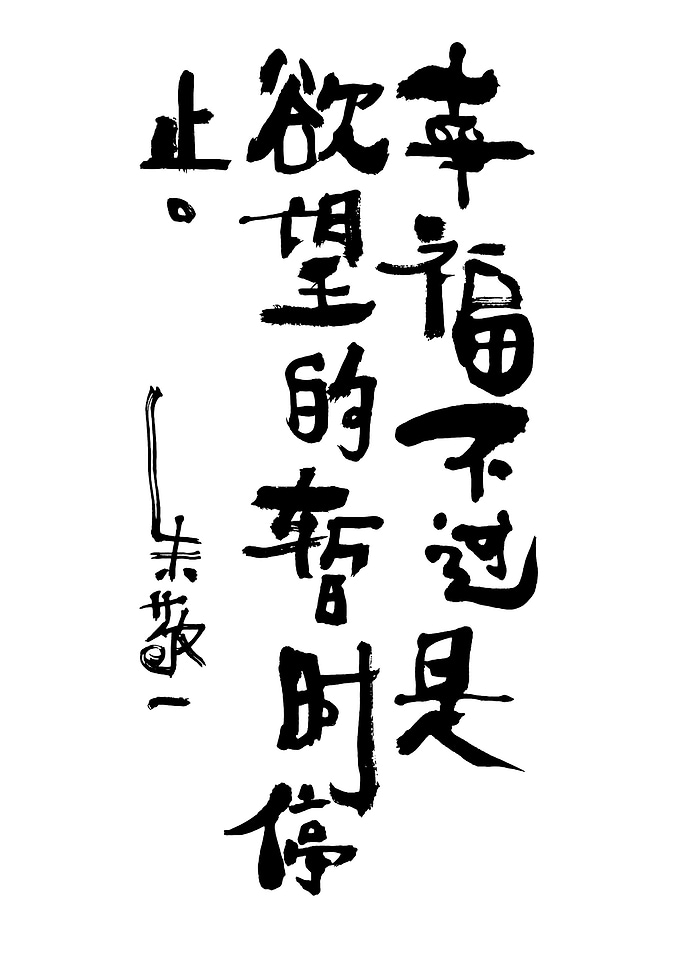 幸福不过是
欲望的暂时停
止。
朱敬一